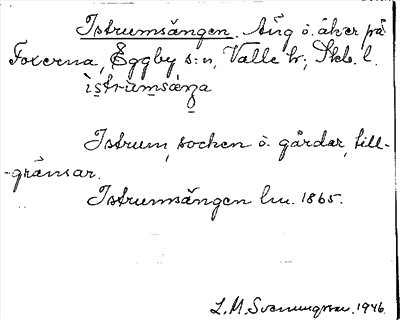 Istrumsängen. Äng o. åker på
Foxerna, Eggby s:n, Valle hr; Skb. l.
ìstrumsæŋa
Istrum, socken o. gårdar, till-
-gränsar.
Istrumsängen lm. 1865.
L. M. Svenungsson. 1946.